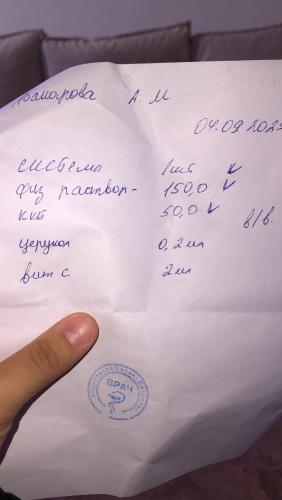 А. М
04.09.202
система 1шт ✓
физ раствор- 150,0 ✓
ккб 50,0 ✓
в/в.
церукал 0,2мл
вит с 2мл
ВРАЧ